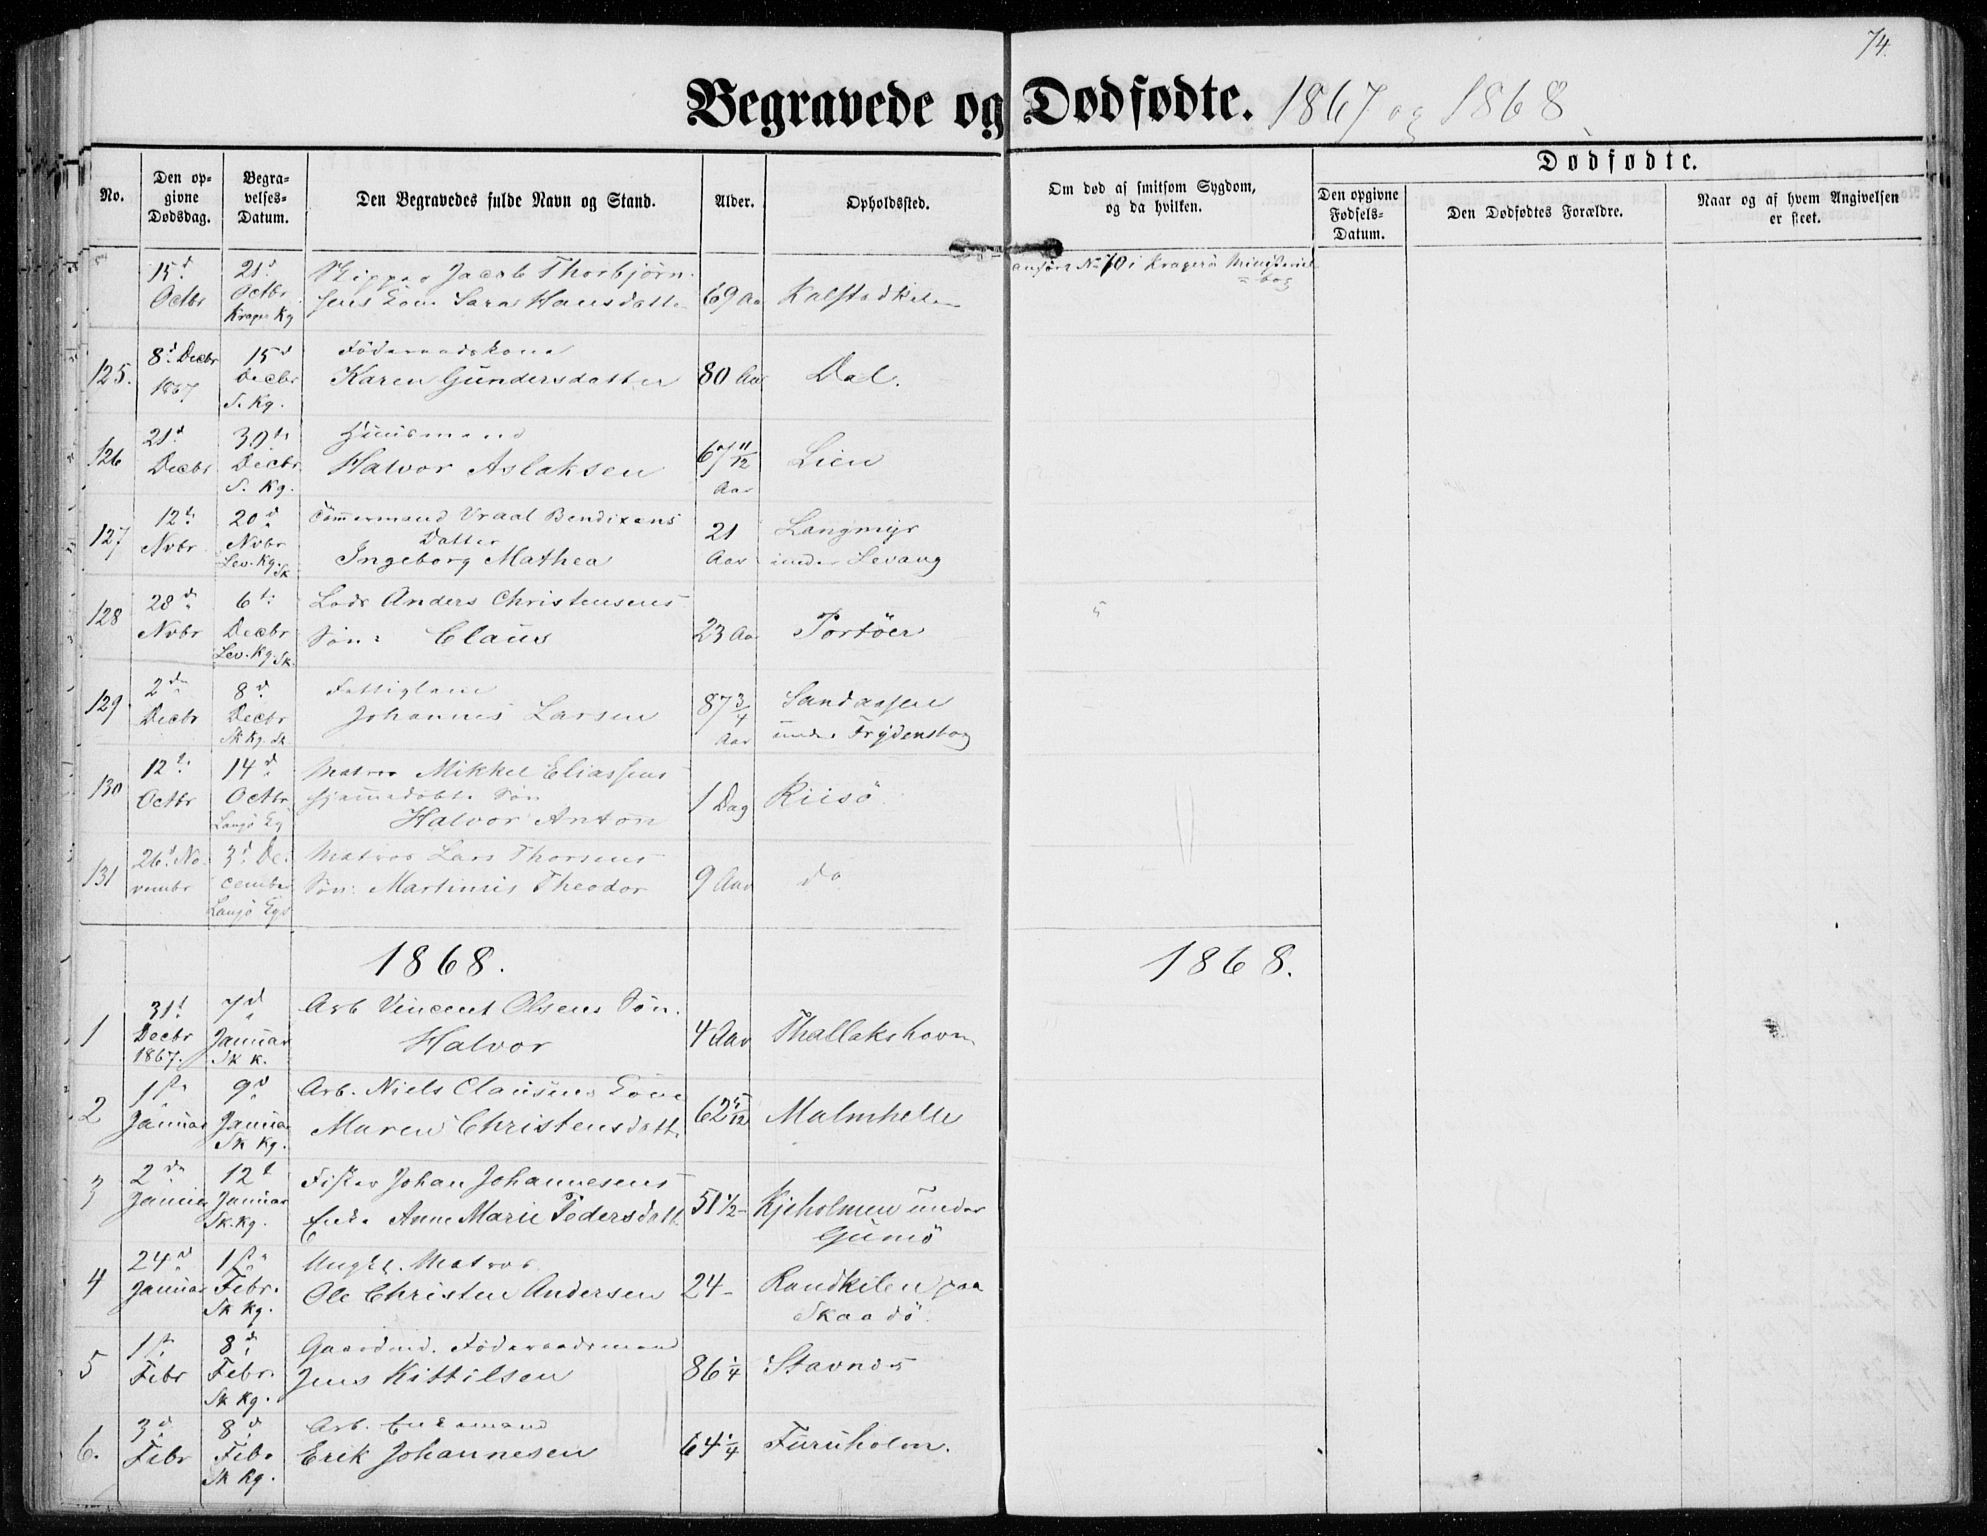 74.
Begravede og Dødfødte. 1867 og 1868
No.
Den op-
givne
Dødsdag.
Begra-
velses-
Datum.
Den Begravedes fulde Navn og Stand.
Alder.
Opholdssted.
Om død af smitsom Sygdom,
og da hvilken.
Dødfødte.
Den opgivne
Fødsels-
Datum.
Den Dødfødtes Forældre.
Naar og af hvem Angivelsen
er skeet.
15d
Octbr
21d
Octbr
Krager Kg
Skipper Jacob Thorbjørn-
sens Kone Sara Hansdatter
69 Aar
Kalstadkilen
anført No 70 i Kragerö Ministerial-
=bog
125.
8d Decbr
1867
15d
Decbr
S. Kg.
Föderaadskone
Karen Gundersdatter
80 Aar
Dal.
126
21d
Decbr
30te
Decbr
S. Kg.
Huusmand
Halvor Aslaksen
67 11/12
Aar
Lien
127
12te
Nvbr
20d
Nvbr
Lev. Kg. Sk
Tömmermand Vraal Bendixens
Datter
Ingeborg Mathea
21
Aar
Langmyr
under Levang
128
28de
Nvbr
6te
Decbr
Lev. Kg. Sk.
Lods Anders Christensens
Søn: Claus
23 Aar
Portöer
129
2den
Decbr
8d
Decbr
Sk Kg. Sk
Fattiglem
Johannes Larsen
87 3/4
Aar
Sandaasen
under Frydensborg
130
12te
Octbr
14d
Octbr
Langö Kg
Matros Mikkel Eliassens
hjemmedöbte Søn
Halvor Anton
1 Dag
Riisö
131
26d No-
vembr
3d De-
cember
Langö Kg
Matros Lars Thorsens
Søn: Martinius Theodor
9 Aar
do
1868.
1868.
1
31t
Decbr
1867.
7d
Januar
Sk k.
Arb Vincent Olsens Søn.
Halvor
4 Aar
Thallakshavn
2
1ste
Januar
9d
Januar
Sk Kg.
Arb. Niels Clausens Kone
Maren Christensdatt.
62 5/12
Malmhelle
3
2den
Januar
12t
Januar
Sk. Kg.
Fisker Johan Johannesens
Enke Anne Marie Pedersdatt
51 1/2 -
Kjeholmen under
Gumö
4
24d
Januar
1ste
Febr.
Sk Kg.
Ungk. Matros
Ole Christen Andersen
24 -
Rundkilen paa
Skaadö.
5
1ste
Febr
8d
Febr.
Sk Kg.
Gaardmd. Föderaadsmand
Jens Kittilsen
86 1/4
Stavnes
6.
3d
Febr
8d
Febr
Sk Kg.
Arb. Enkemand
Erik Johannesen
64 1/4
Furuholm.